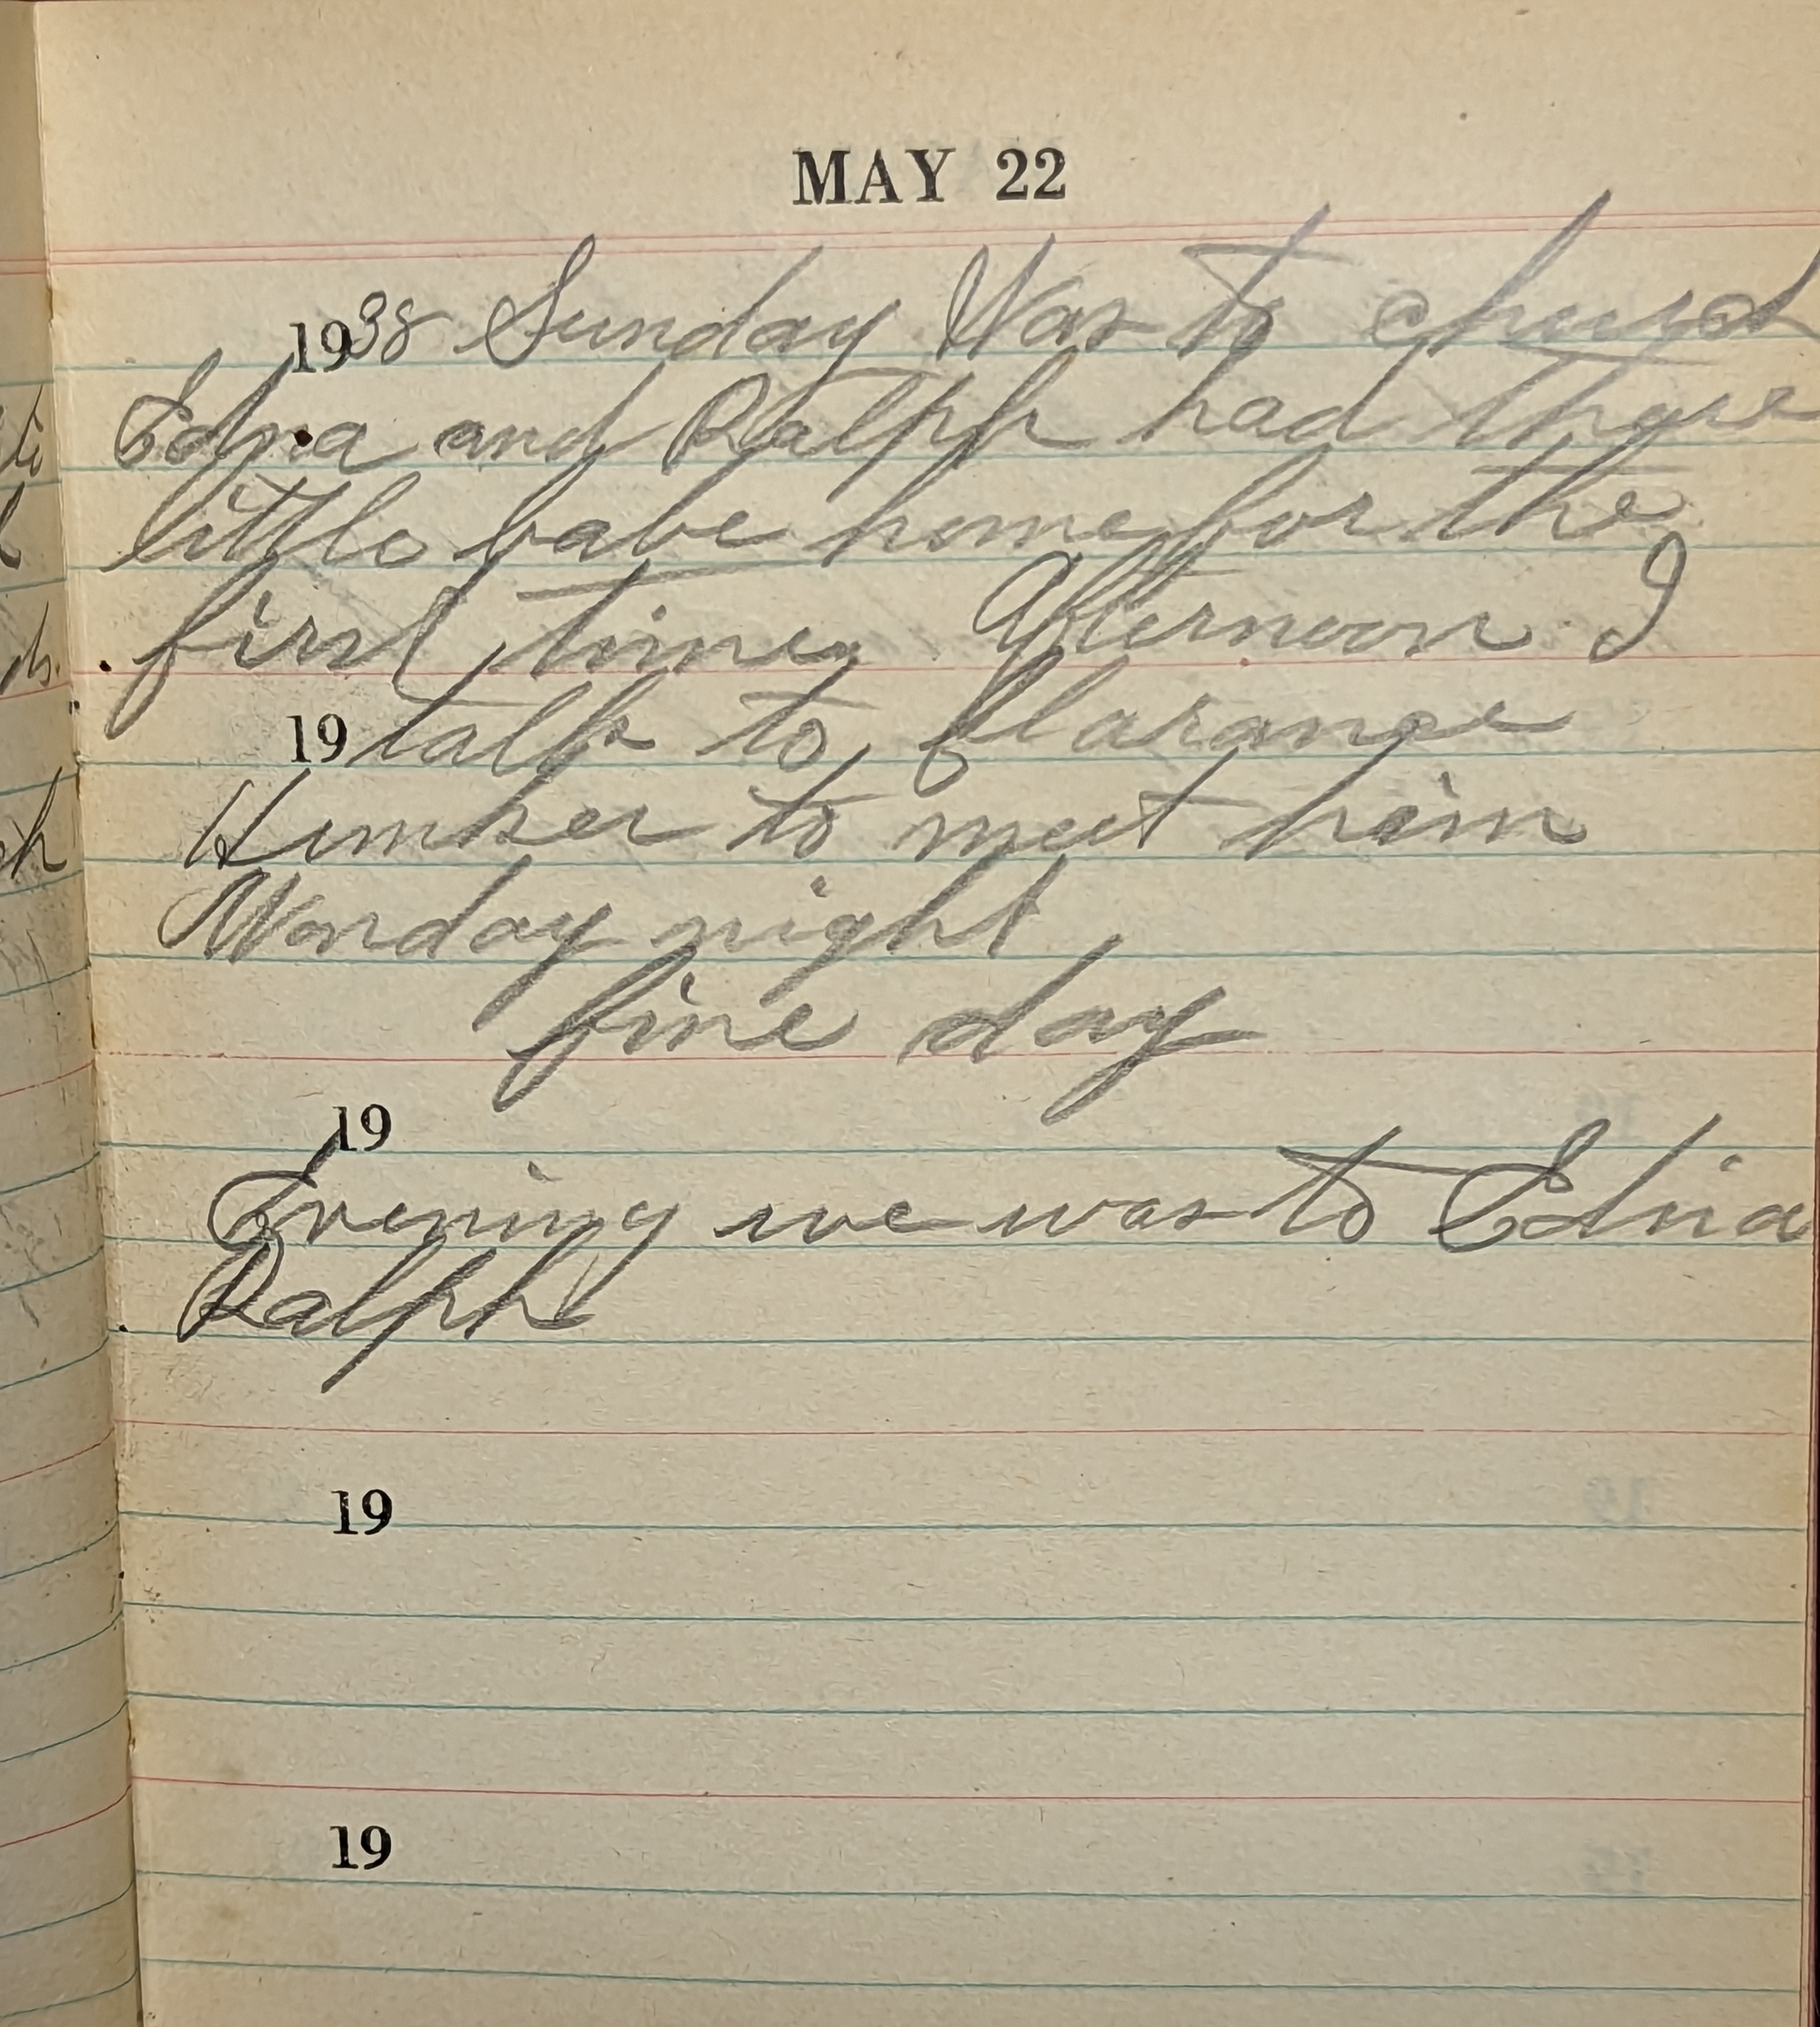 MAY 22
1938 Sunday Was to church
Edna and Ralph had thare
little babe home for the
first time, Afternoon I
19 talk to Clarance
to meet him
Monday night
fine day
19
Evening we was to Edna
Ralph
19
19